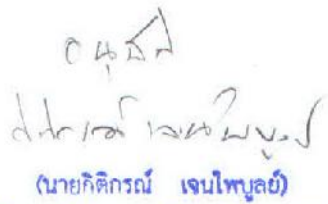 อนุมัติ
(นายกิติกรณ์ เจนไพบูลย์)